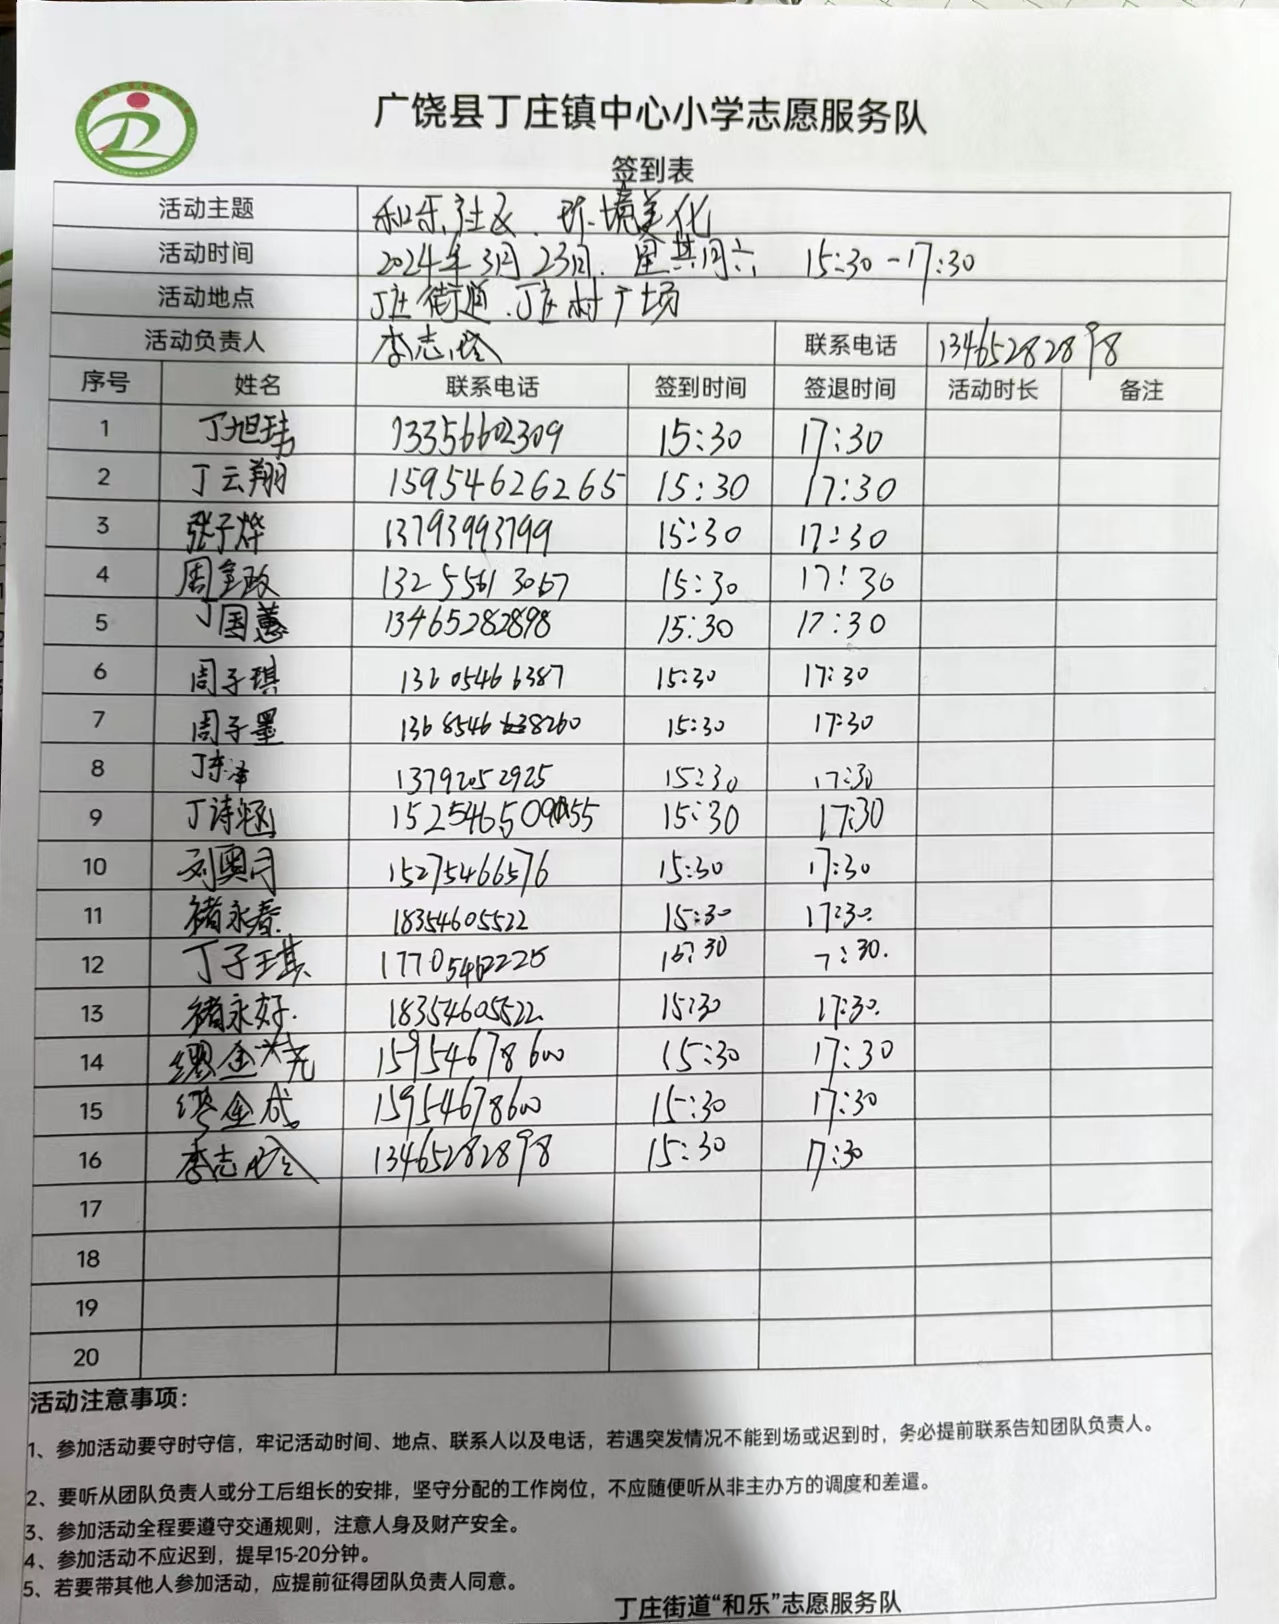 广饶县丁庄镇中心小学志愿服务队
签到表
活动主题 和乐社区.环境美化
活动时间 2024年3月23日.星期六 15:30-17:30
活动地点 丁庄街道.丁庄村广场
活动负责人 李志玲 联系电话 13465282898
序号 姓名 联系电话 签到时间 签退时间 活动时长 备注
1 丁旭玮 13356602309 15:30 17:30
2 丁云翔 15954626265 15:30 17:30
3 张子烨 13793993799 15:30 17:30
4 周 政 13255613067 15:30 17:30
5 丁国蕙 13465282898 15:30 17:30
6 周子琪 13605466387 15:30 17:30
7 周子墨 1368546 8260 15:30 17:30
8 丁东泽 13792052925 15:30 17:30
9 丁诗涵 15:30 17:30
10 刘奥 15275466576 15:30 17:30
11 褚永春 18354605522 15:30 17:30.
12 丁子琪 17705462225 :30 7:30.
13 褚永好. 18354605522. 15:30 17:30.
14 缪金 15954678600 15:30 17:30
15 缪金成 15954678600 15:30 17:30
16 李志玲 13465282898 15:30 17:30
17
18
19
20
活动注意事项：
1、参加活动要守时守信，牢记活动时间、地点、联系人以及电话，若遇突发情况不能到场或迟到时，务必提前联系告知团队负责人。
2、要听从团队负责人或分工后组长的安排，坚守分配的工作岗位，不应随便听从非主办方的调度和差遣。
3、参加活动全程要遵守交通规则，注意人身及财产安全。
4、参加活动不应迟到，提早15-20分钟。
5、若要带其他人参加活动，应提前征得团队负责人同意。
丁庄街道“和乐”志愿服务队